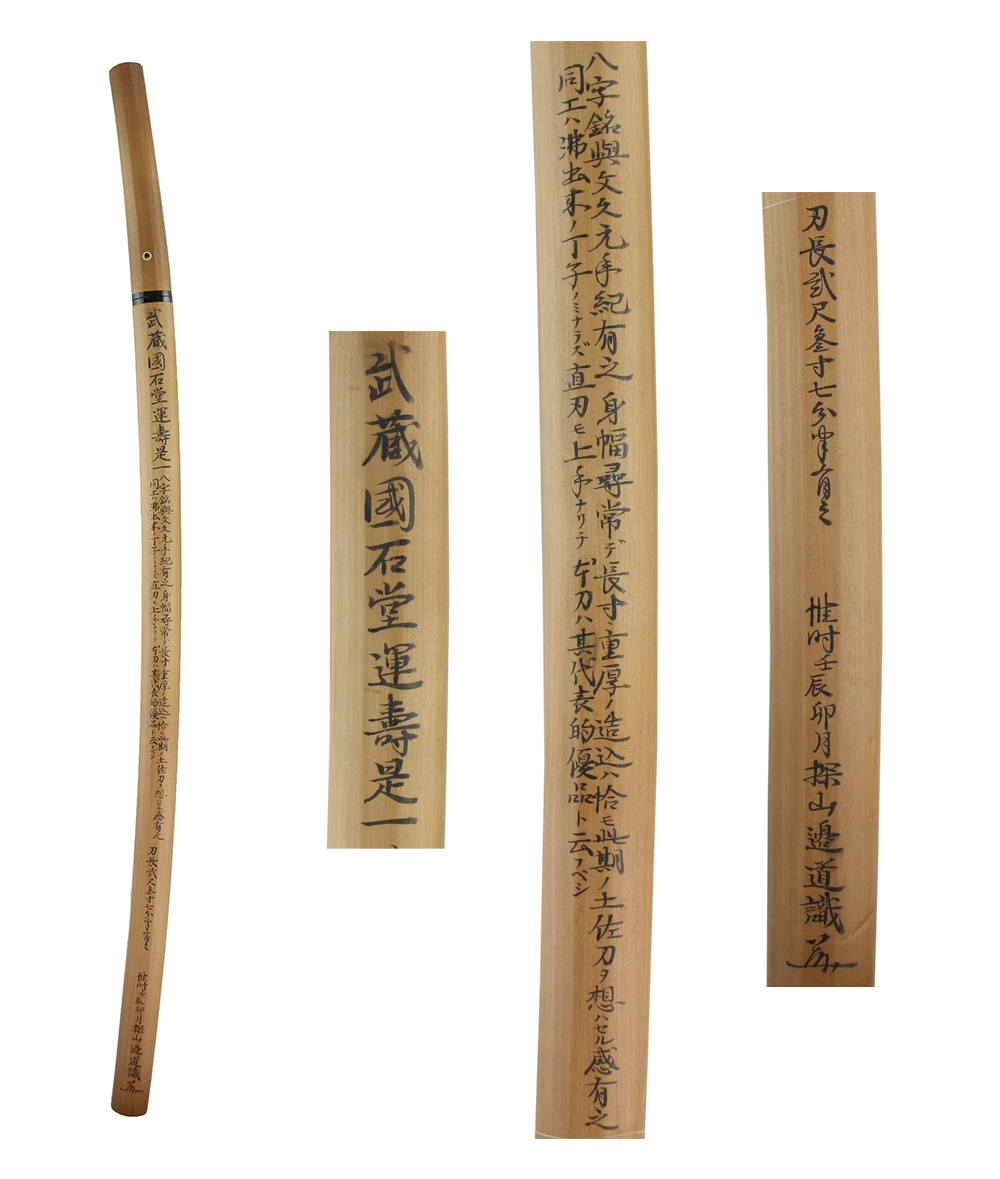 武蔵國石堂運壽是一
八字銘與文久元年紀有之身幅尋常デ長寸ミ重厚ノ造込ハ恰モ此期ノ土佐刀ヲ想ハセル感有之
同工ハ沸出来ノ丁子ノミナラズ直刃モ上手ナリテ本刀ハ其代表的優品ト云フベシ
刃長弐尺参寸七分半有之
惟時壬辰卯月探山邉道識